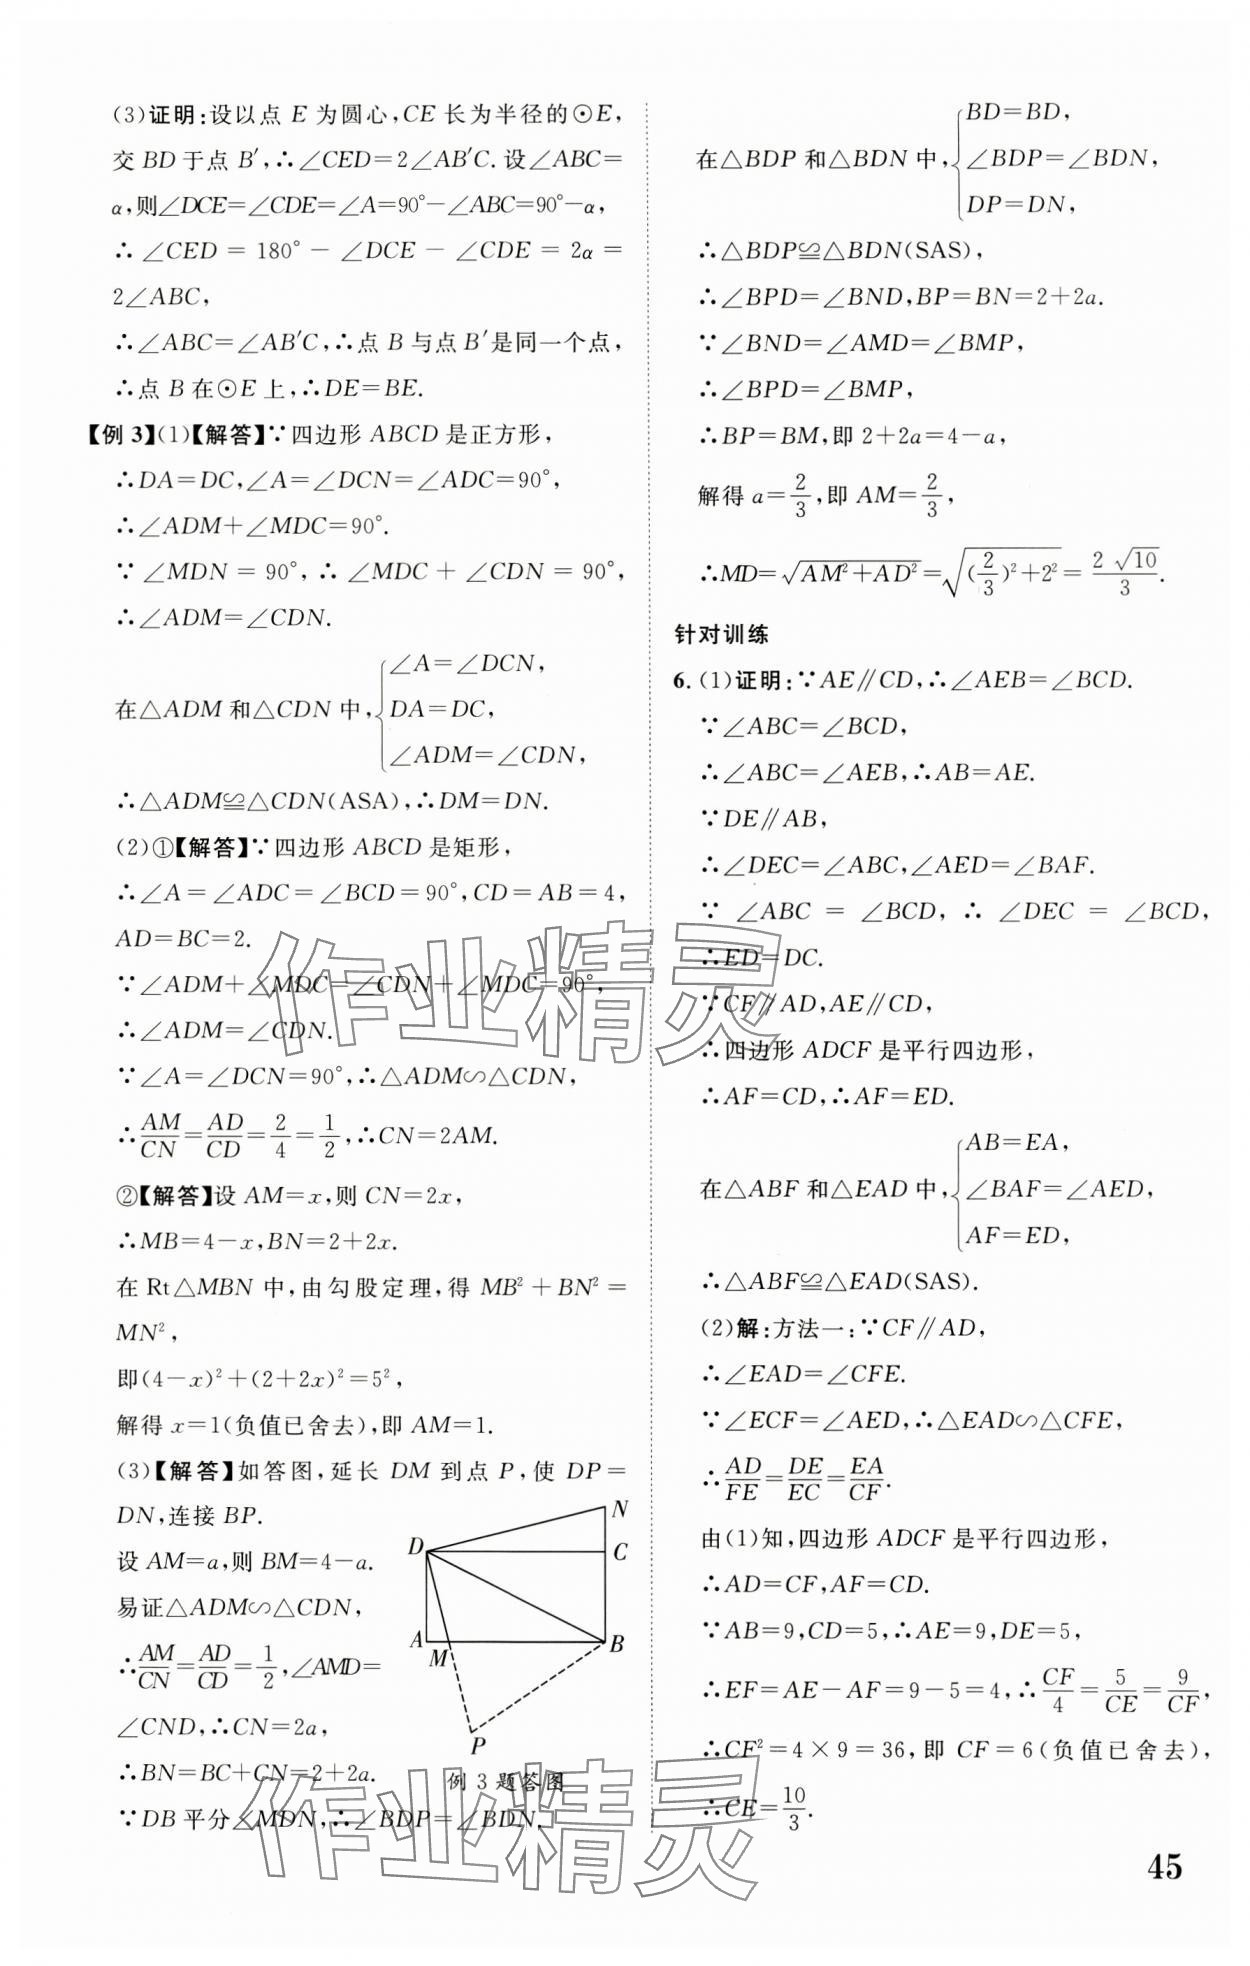 (3)证明:设以点 E 为圆心,CE 长为半径的⊙E,
交 BD 于点 B′,∴∠CED=2∠AB′C. 设∠ABC=
α,则∠DCE=∠CDE=∠A=90°-∠ABC=90°-α,
∴ ∠CED = 180° - ∠DCE - ∠CDE = 2α =
2∠ABC,
∴∠ABC=∠AB′C,∴点 B 与点 B′是同一个点,
∴点 B 在⊙E 上,∴DE=BE.
【例 3】(1)【解答】∵四边形 ABCD 是正方形,
∴DA=DC,∠A=∠DCN=∠ADC=90°,
∴∠ADM+∠MDC=90°.
∵ ∠MDN = 90°, ∴ ∠MDC + ∠CDN = 90°,
∴∠ADM=∠CDN.
在△ADM 和△CDN 中,{∠A=∠DCN,
DA=DC,
∠ADM=∠CDN,
∴△ADM≌△CDN(ASA),∴DM=DN.
(2)①【解答】∵四边形 ABCD 是矩形,
∴∠A=∠ADC=∠BCD=90°,CD=AB=4,
AD=BC=2.
∵∠ADM+∠MDC=∠CDN+∠MDC=90°,
∴∠ADM=∠CDN.
∵∠A=∠DCN=90°,∴△ADM∽△CDN,
∴AM/CN=AD/CD=2/4=1/2,∴CN=2AM.
②【解答】设 AM=x,则 CN=2x,
∴MB=4-x,BN=2+2x.
在 Rt△MBN 中,由勾股定理,得 MB²+BN²=
MN²,
即(4-x)²+(2+2x)²=5²,
解得 x=1(负值已舍去),即 AM=1.
(3)【解答】如答图,延长 DM 到点 P,使 DP=
DN,连接 BP.
设 AM=a,则 BM=4-a.
易证△ADM∽△CDN,
∴AM/CN=AD/CD=1/2,∠AMD=
∠CND,∴CN=2a,
∴BN=BC+CN=2+2a.
∵DB 平分∠MDN,∴∠BDP=∠BDN.
N
D
C
A
M
B
P
例 3 题答图
在△BDP 和△BDN 中,{BD=BD,
∠BDP=∠BDN,
DP=DN,
∴△BDP≌△BDN(SAS),
∴∠BPD=∠BND,BP=BN=2+2a.
∵∠BND=∠AMD=∠BMP,
∴∠BPD=∠BMP,
∴BP=BM,即 2+2a=4-a,
解得 a=2/3,即 AM=2/3,
∴MD=√(AM²+AD²)=√((2/3)²+2²)=2√10/3.
针对训练
6. (1)证明:∵AE∥CD,∴∠AEB=∠BCD.
∵∠ABC=∠BCD,
∴∠ABC=∠AEB,∴AB=AE.
∵DE∥AB,
∴∠DEC=∠ABC,∠AED=∠BAF.
∵ ∠ABC = ∠BCD, ∴ ∠DEC = ∠BCD,
∴ED=DC.
∵CF∥AD,AE∥CD,
∴四边形 ADCF 是平行四边形,
∴AF=CD,∴AF=ED.
在△ABF 和△EAD 中,{AB=EA,
∠BAF=∠AED,
AF=ED,
∴△ABF≌△EAD(SAS).
(2)解:方法一:∵CF∥AD,
∴∠EAD=∠CFE.
∵∠ECF=∠AED,∴△EAD∽△CFE,
∴AD/FE=DE/EC=EA/CF.
由(1)知,四边形 ADCF 是平行四边形,
∴AD=CF,AF=CD.
∵AB=9,CD=5,∴AE=9,DE=5,
∴EF=AE-AF=9-5=4,∴CF/4=5/CE=9/CF,
∴CF²=4×9=36,即 CF=6(负值已舍去),
∴CE=10/3.
45
作业精灵
作业精灵